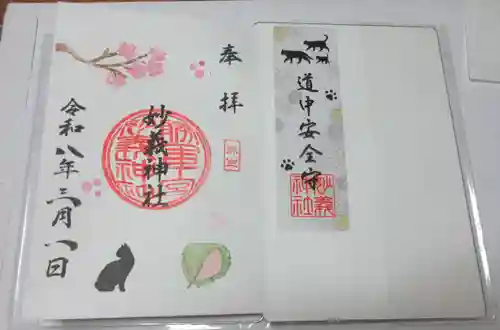 奉拝
妙義神社
令和八年三月一日
道中安全守
妙義
神社